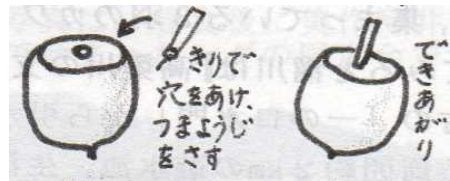 きりで
穴をあけ、
つまようじ
をさす
できあがり